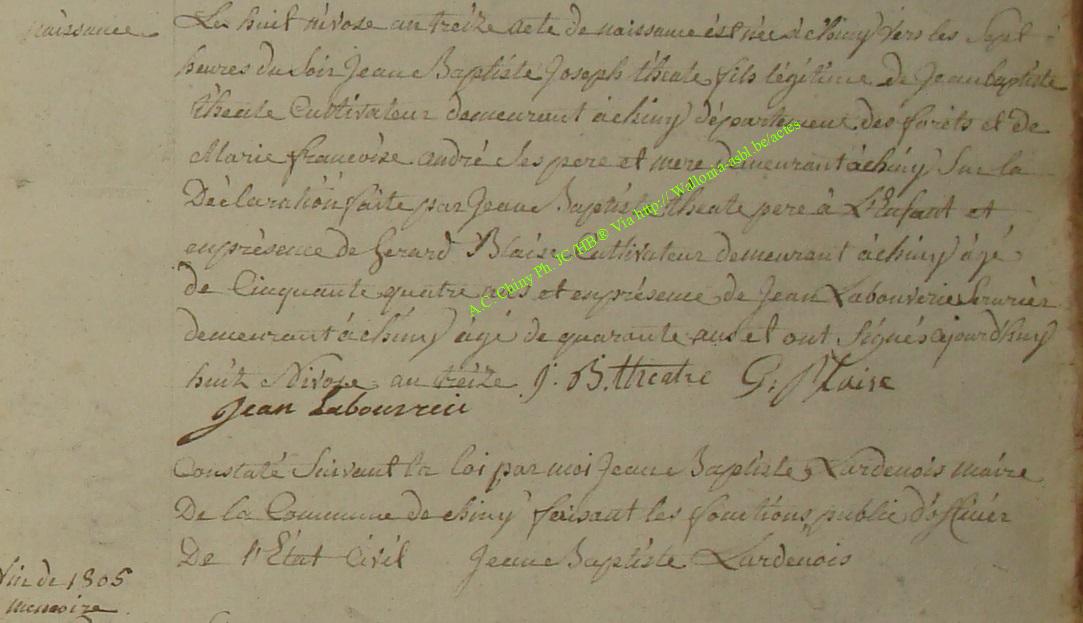 naissance
Le huit nivose an treize acte de naissance est née à chiny vers les Sept
heures du Soir Jean Baptiste Joseph théate fils légitime de Jean baptiste
théate Cultivateur demeurant à chiny département des forêts et de
Marie francoise andré Ses pere et mere demeurant à chiny Sur la
Déclaration faite par Jean Baptiste théate pere à L'Enfant et
en présence de Gerard Blaise Cultivateur demeurant à chiny âgé
de Cinquante quatre ans et en présence de Jean Labouverie Serurier
demeurant à chiny âgé de quarante ans et ont Signés ajourd'huy
huit Nivose an treize J. B. theatre G. Blaise
Jean Labouverie
Constaté Suivant la loi par moi Jean Baptiste Lardenois maire
De la Commune de chiny faisant les fonctions public d'officier
De l'État Civil Jean Baptiste Lardenois
de 1805
memoire
A.C. Chiny Ph. JC /HB® Via http:// Walloma-asbl.be/actes